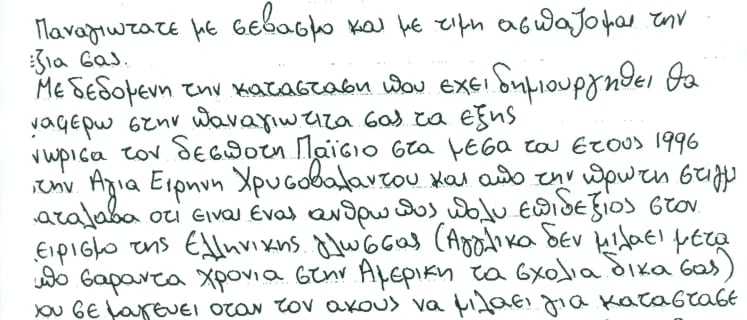 Παναγιωτατε με σεβασμο και με τιμη ασπαζομαι την
ξια σας.
Με δεδομενη την κατασταση που εχει δημιουργηθει θα
ναφερω στην παναγιωτιτα σας τα εξης
νωρισα τον δεσποτη Παϊσιο στα μεσα του ετους 1996
την Αγια Ειρηνη Χρυσοβαλαντου και απο την πρωτη στιγμ
αταλαβα οτι ειναι ενας ανθρωπος πολυ επιδεξιος στον
ειρισμο της Ελληνικης γλωσσας (Αγγλικα δεν μιλαει μετα
πο σαραντα χρονια στην Αμερικη τα σχολια δικα σας)
ου σε μαγευει οταν τον ακους να μιλαει για καταστασε